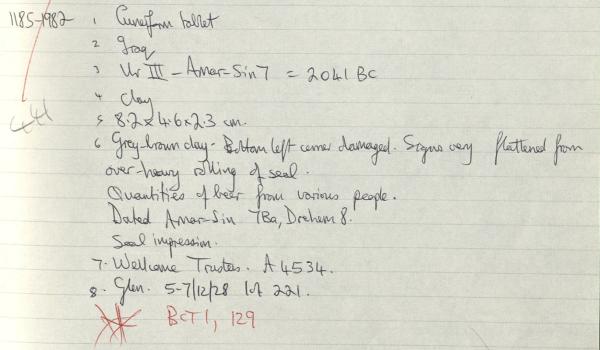 1185-1982 1 Cuneiform tablet
2 Iraq
3 Ur III - Amar-Sin 7 = 2041 BC
4 Clay
5 8.2 x 4.6 x 2.3 cm.
6 Grey-brown clay - Bottom left corner damaged. Signs very flattened from
over-heavy rolling of seal.
Quantities of beer from various people.
Dated Amar-Sin 7Ba, Drehem 8.
Seal impression.
7. Wellcome Trustees. A 4534.
8. Glen. 5-7/12/28 lot 221.
BCT 1, 129